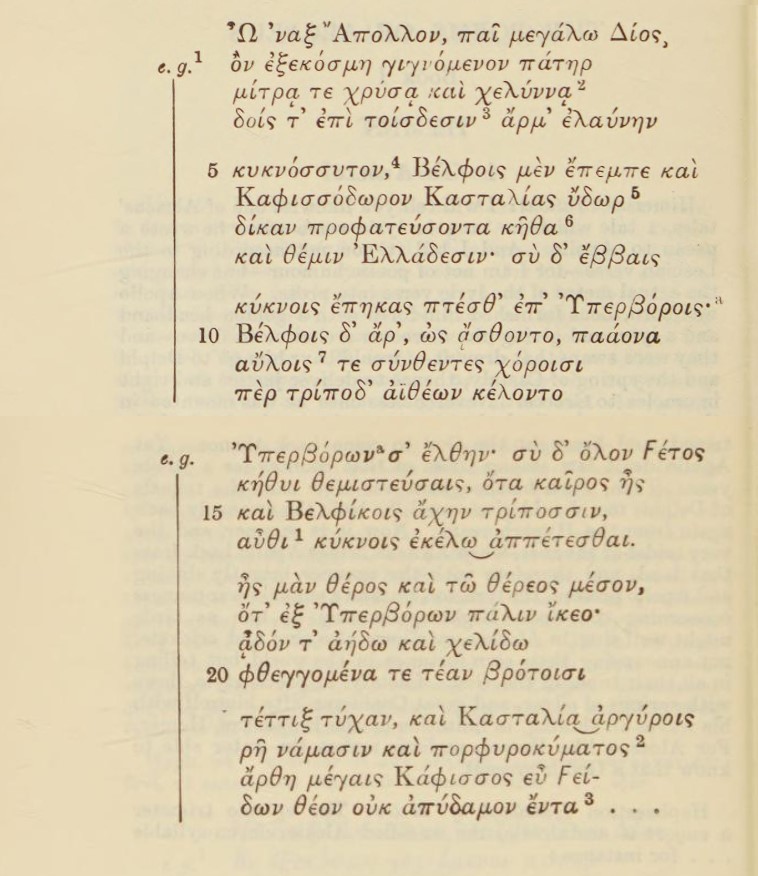 Ὦ 'ναξ Ἄπολλον, παῖ μεγάλω Δίος,
e. g.¹ ὂν ἐξεκόσμη γιγνόμενον πάτηρ
μίτρᾳ τε χρύσᾳ καὶ χελύννᾳ²
δοίς τ' ἐπὶ τοίσδεσιν³ ἄρμ' ἐλαύνην
5 κυκνόσσυτον,⁴ Βέλφοις μὲν ἔπεμπε καὶ
Καφισσόδωρον Κασταλίας ὔδωρ⁵
δίκαν προφατεύσοντα κῆθα⁶
καὶ θέμιν Ἐλλάδεσιν· σὺ δ' ἔββαις
κύκνοις ἔπηκας πτέσθ' ἐπ' Υ̓περβόροις·ᵃ
10 Βέλφοις δ' ἄρ', ὠς ᾄσθοντο, παάονα
αὔλοις⁷ τε σύνθεντες χόροισι
πὲρ τρίποδ' ἀϊθέων κέλοντο
e. g. Υ̓περβόρωνᵃ σ' ἔλθην· σὺ δ' ὄλον Ϝέτος
κήθυι θεμιστεύσαις, ὄτα καῖρος ἦς
15 καὶ Βελφίκοις ἄχην τρίποσσιν,
αὖθι¹ κύκνοις ἐκέλω‿ἀππέτεσθαι.
ἦς μὰν θέρος καὶ τῶ θέρεος μέσον,
ὄτ' ἐξ Υ̓περβόρων πάλιν ἴκεο·
ᾆδόν τ' ἀήδω καὶ χελίδω
20 φθεγγομένα τε τέαν βρότοισι
τέττιξ τύχαν, καὶ Κασταλία‿ἀργύροις
ρῆ νάμασιν καὶ πορφυροκύματος²
ἄρθη μέγαις Κάφισσος εὖ Ϝεί-
δων θέον οὐκ ἀπύδαμον ἔντα³ . . .